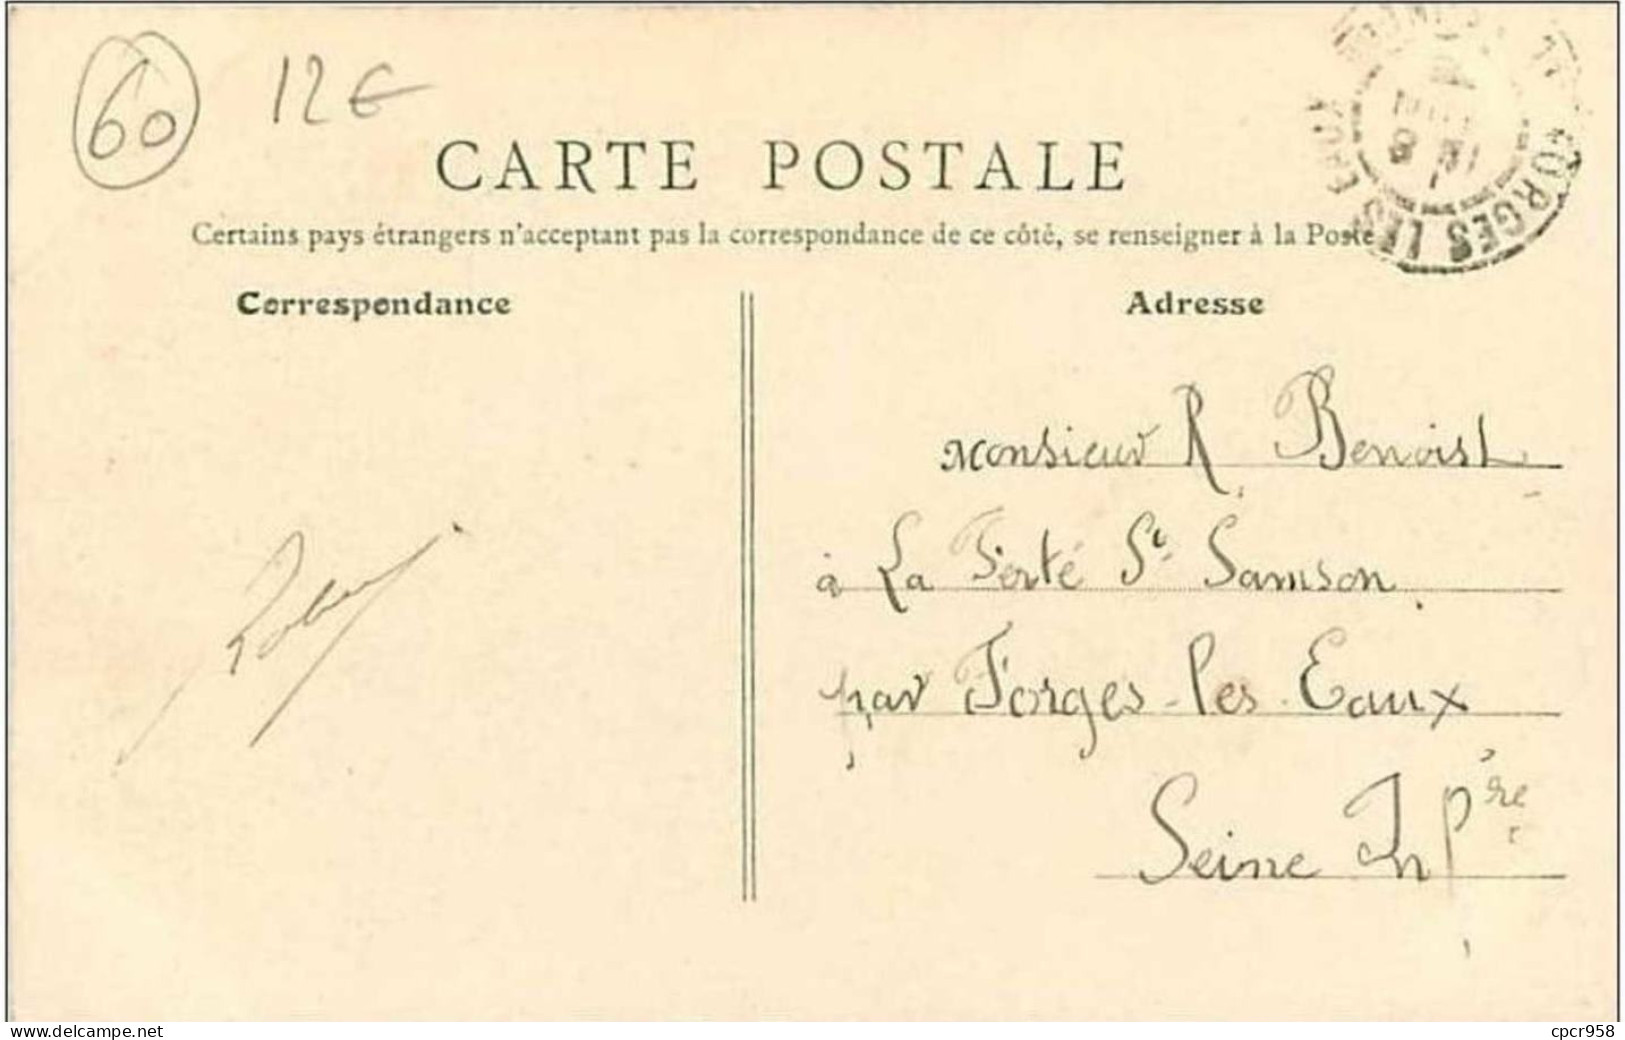 60
12€
CARTE POSTALE
Certains pays étrangers n'acceptant pas la correspondance de ce côté, se renseigner à la Poste
Correspondance
Adresse
Monsieur R Benoist
à La Ferté St Samson
par Forges-les-Eaux
Seine Infre
www.delcampe.net
cpcr958